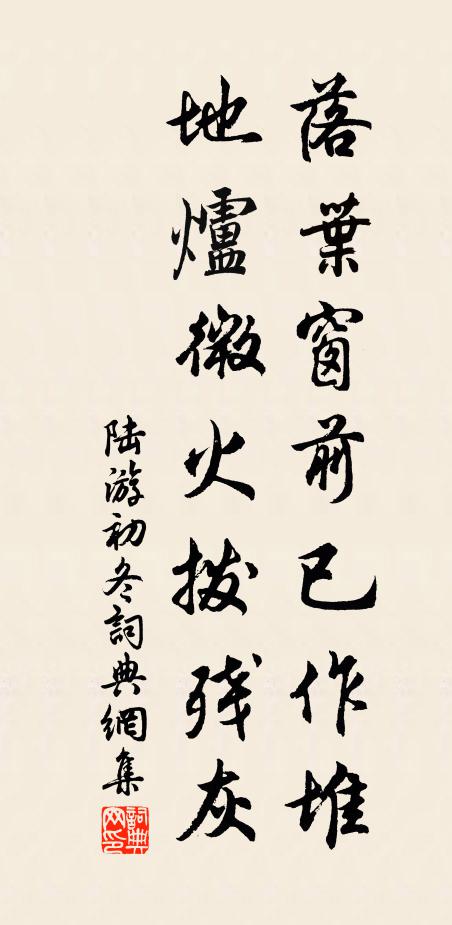 落葉窗前已作堆
地爐微火撥残灰
陆游初冬詞典網集
詞典网印